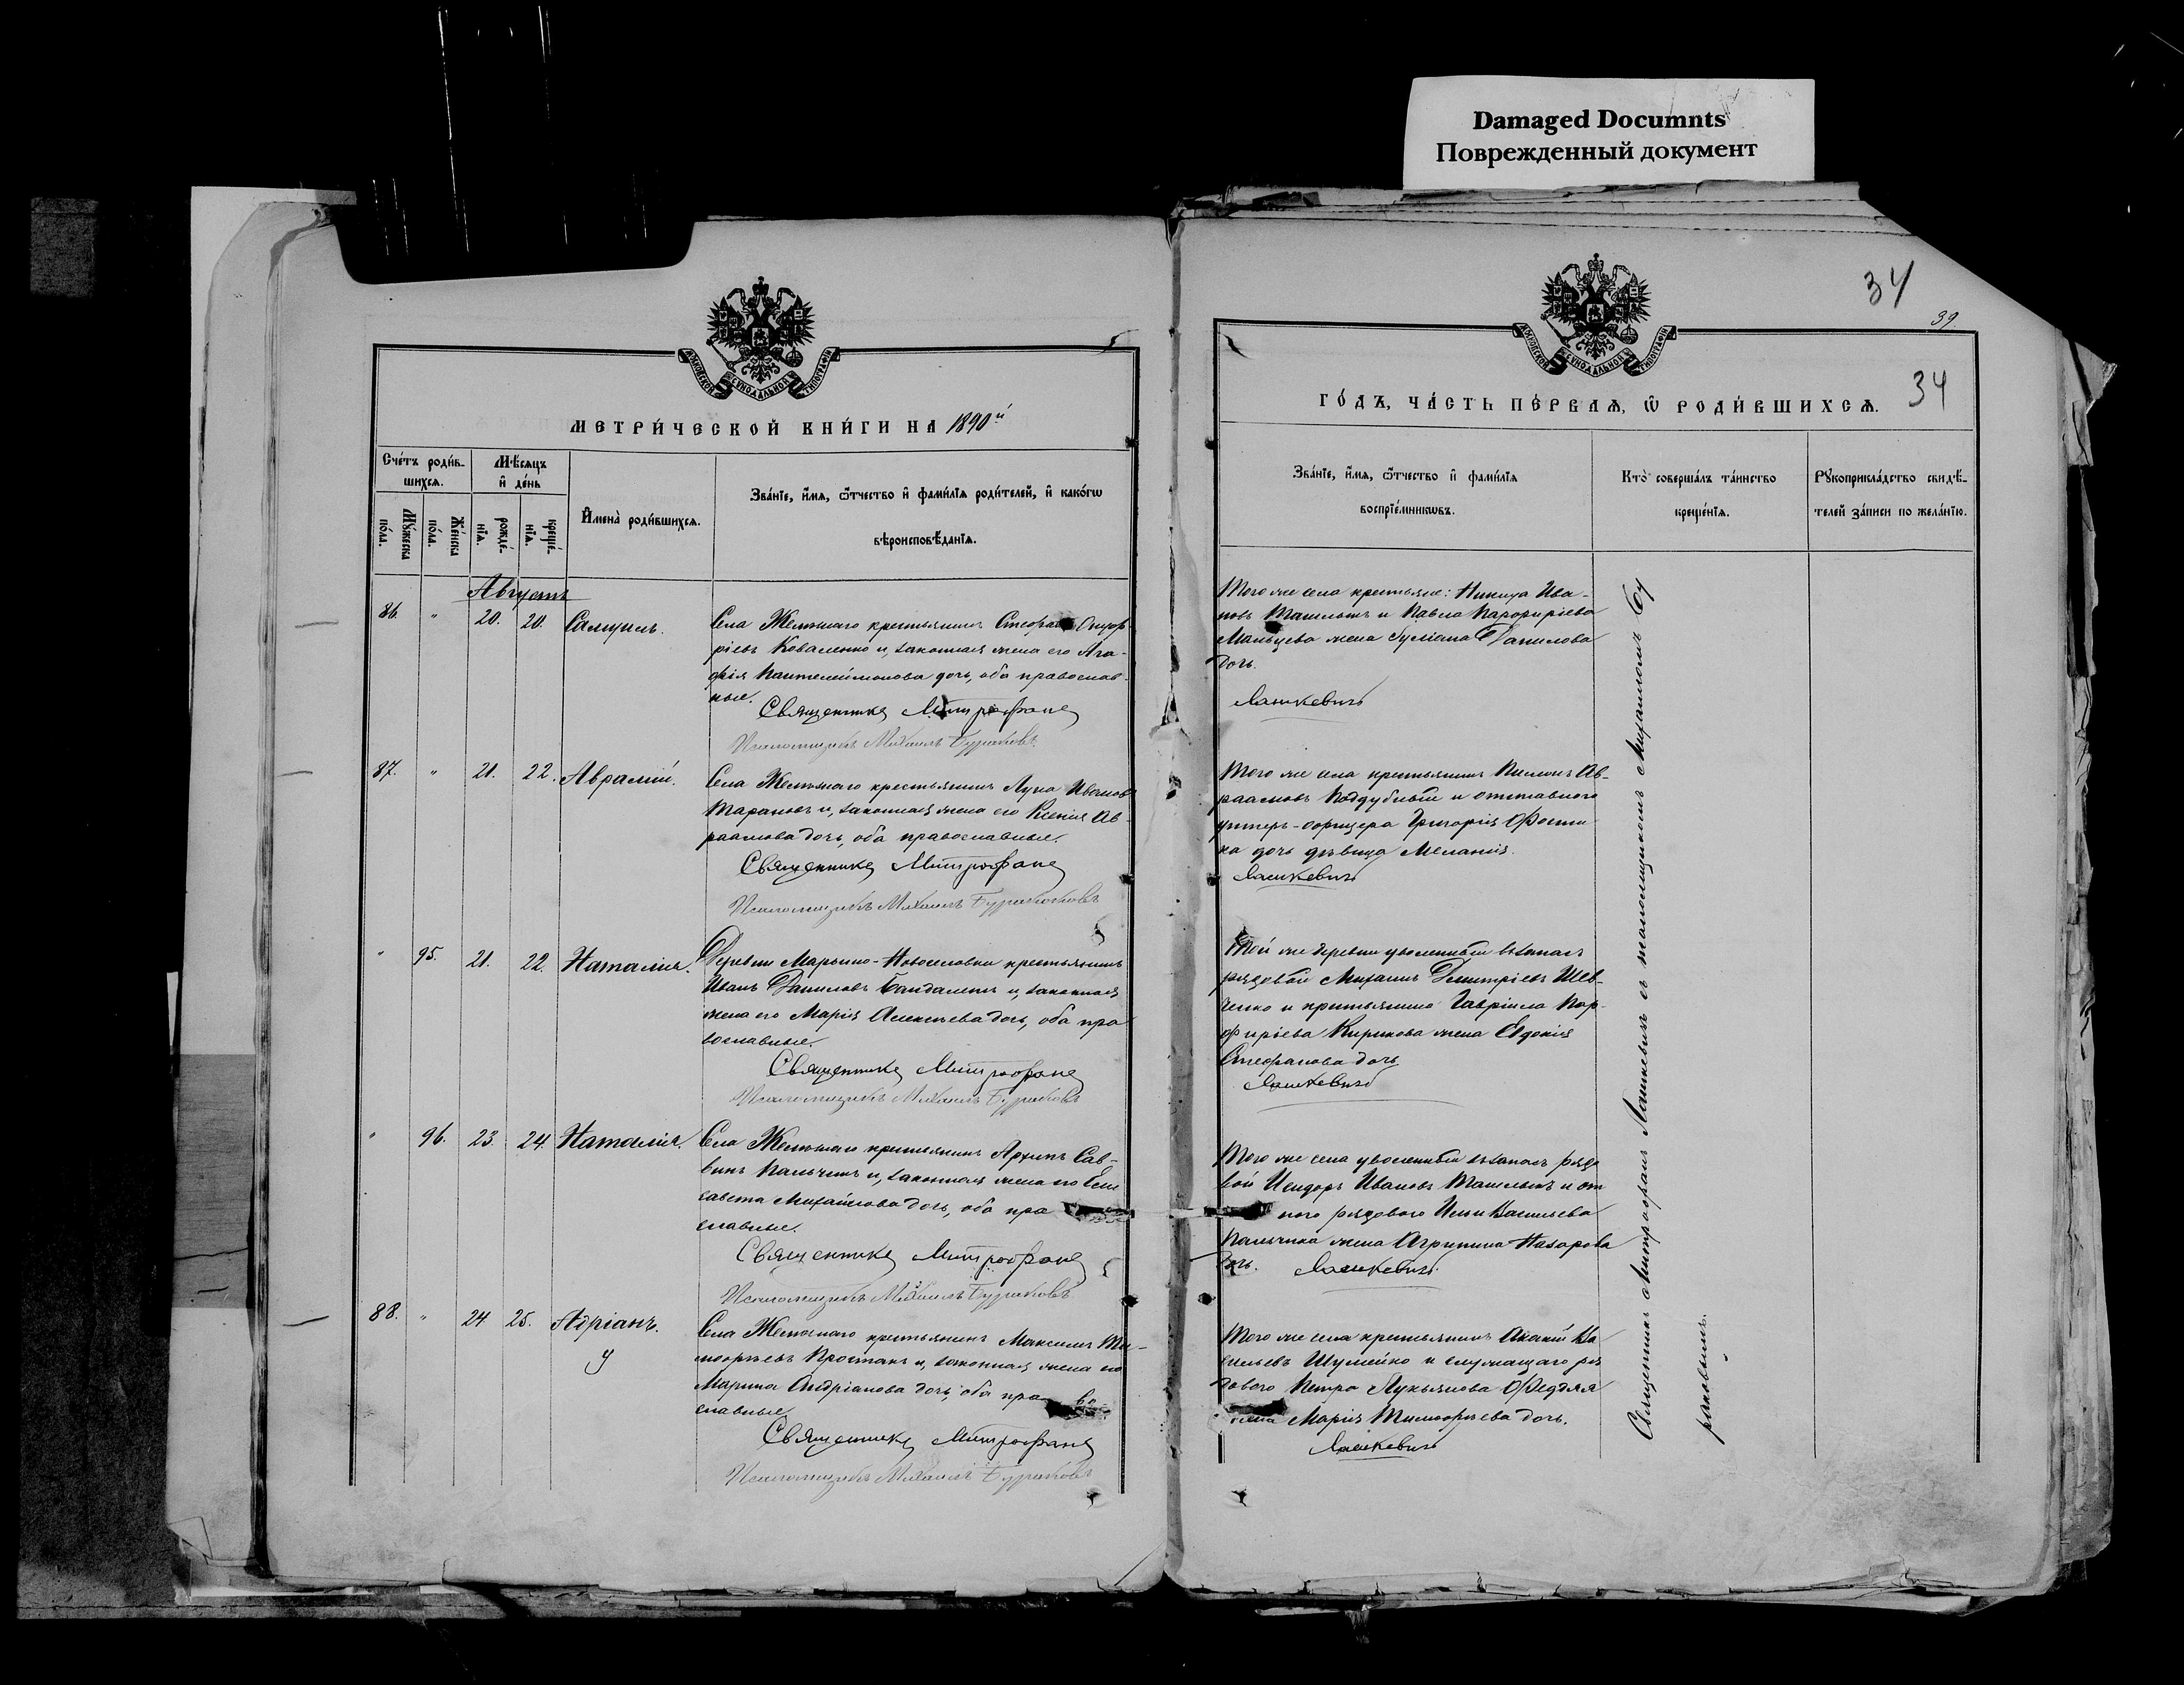 Damaged Documnts
Поврежденный документ
34
39
34
МОСКОВСКОЙ СУНОДАЛЬНОЙ ТИПОГРАФІИ
МОСКОВСКОЙ СУНОДАЛЬНОЙ ТИПОГРАФІИ
МЕТРИ́ЧЕСКОЙ КНИ́ГИ НА 1890й
ГО́ДЪ, ЧА́СТЬ ПЕ́РВАѦ, Ѿ РОДИ́ВШИХСѦ.
Сче́тъ роди́в-
шихсѧ.
Мѣ́сѧцъ
и҆ де́нь
Мꙋ́жеска по́ла.
Же́нска по́ла.
рожде́-
нїѧ.
креще́-
нїѧ.
И҆мена̀ роди́вшихсѧ.
Зва́нїе, и҆́мѧ, ѻ҆́тчество и҆ фами́лїѧ роди́телей, и҆ како́гѡ
вѣроисповѣ́данїѧ.
Зва́нїе, и҆́мѧ, ѻ҆́тчество и҆ фами́лїѧ
воспрїе́мникѡвъ.
Кто̀ соверша́лъ та́инство
креще́нїѧ.
Рꙋкоприкла́дство свидѣ́-
телей за́писи по жела́нїю.
Августъ
86. " 20. 20. Самуилъ.
Села Желѣзнаго крестьянинъ Стефанъ Онуф-
ріевъ Коваленко и, законная жена его Ага-
фія Пантелеимонова дочь, оба православ-
ные.
Священникъ Митрофанъ
Псаломщикъ Михаилъ Бураковъ
Того же села крестьяне: Никита Ива-
новъ Ташлыкъ и Павла Парфиріева
Мальцева жена Іуліана Данилова
дочь.
Лашкевичъ
87. " 21. 22. Аврамій.
Села Желѣзнаго крестьянинъ Лука Ивановъ
Тарановъ и, законная жена его Ксенія Ав-
раамова дочь, оба православные.
Священникъ Митрофанъ
Псаломщикъ Михаилъ Бураковъ
Того же села крестьянинъ Пименъ Ав-
раамовъ Поддубный и отставного
унтеръ-офицера Григорія
ка дочь дѣвица Меланія.
Лашкевичъ
" 95. 21. 22. Наталія.
Деревни Марьино-Новоселовки крестьянинъ
Иванъ Даниловъ Бандалетъ и, законная
жена его Марія Алексѣева дочь, оба пра
вославные.
Священникъ Митрофанъ
Псаломщикъ Михаилъ Бураковъ
Той же деревни уволенный въ запасъ
рядовой Михаилъ Димитріевъ Шев-
ченко и крестьянина Гавріила Пор-
фиріева Кирикова жена Евдокія
Стефанова дочь
Лашкевичъ
" 96. 23. 24. Наталія.
Села Желѣзнаго крестьянинъ Архипъ Сав-
винъ Пальчикъ и, законная жена его Ели
савета Михайлова дочь, оба пра
славные.
Священникъ Митрофанъ
Псаломщикъ Михаилъ Бураковъ
Того же села уволенный въ запасъ рядо
вой Исидоръ Ивановъ Ташлыкъ и от
ного рядового Васильева
Пальчика жена Агрипина Назарова
дочь. Лашкевичъ
88. " 24 25. Адріанъ.
Села Желѣзнаго крестьянинъ Максимъ Ти-
мофѣевъ Простакъ и, законная жена его
Марина Андріанова дочь, оба пра во
славные.
Священникъ Митрофанъ
Псаломщикъ Михаилъ Бураковъ
Того же села крестьянинъ Акакій Ва
сильевъ Шумейко и служащаго ря
дового Петра Лукьянова
жена Марія Тимофѣева дочь.
Лашкевичъ
Священникъ Митрофанъ Лашкевичъ съ псаломщикомъ Михаиломъ Бу
раковымъ.